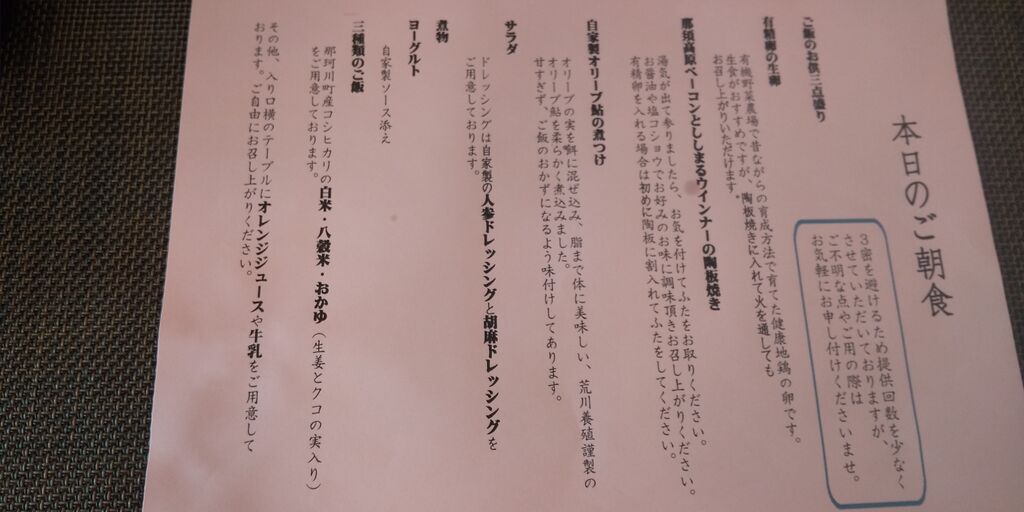 本日のご朝食
3密を避けるため提供回数を少なく
させていただいておりますが、
ご不明な点やご用の際は
お気軽にお申し付けくださいませ。
ご飯のお供三点盛り
有精卵の生卵
有機野菜農場で昔ながらの育成方法で育てた健康地鶏の卵です。
生食がおすすめですが、陶板焼きに入れて火を通しても
お召し上がりいただけます。
那須高原ベーコンとししまるウインナーの陶板焼き
湯気が出て参りましたら、お気を付けてふたをお取りください。
お醤油や塩コショウでお好みのお味に調味頂きお召し上がりください。
有精卵を入れる場合は初めに陶板に割入れてふたをしてください。
自家製オリーブ鮎の煮つけ
オリーブの実を餌に混ぜ込み、脂まで体に美味しい、荒川養殖謹製の
オリーブ鮎を柔らかく煮込みました。
甘すぎず、ご飯のおかずになるよう味付けしてあります。
サラダ
ドレッシングは自家製の人参ドレッシングと胡麻ドレッシングを
ご用意しております。
煮物
ヨーグルト
自家製ソース添え
三種類のご飯
那珂川町産コシヒカリの白米・八穀米・おかゆ（生姜とクコの実入り）
をご用意しております。
その他、入り口横のテーブルにオレンジジュースや牛乳をご用意して
おります。ご自由にお召し上がりください。